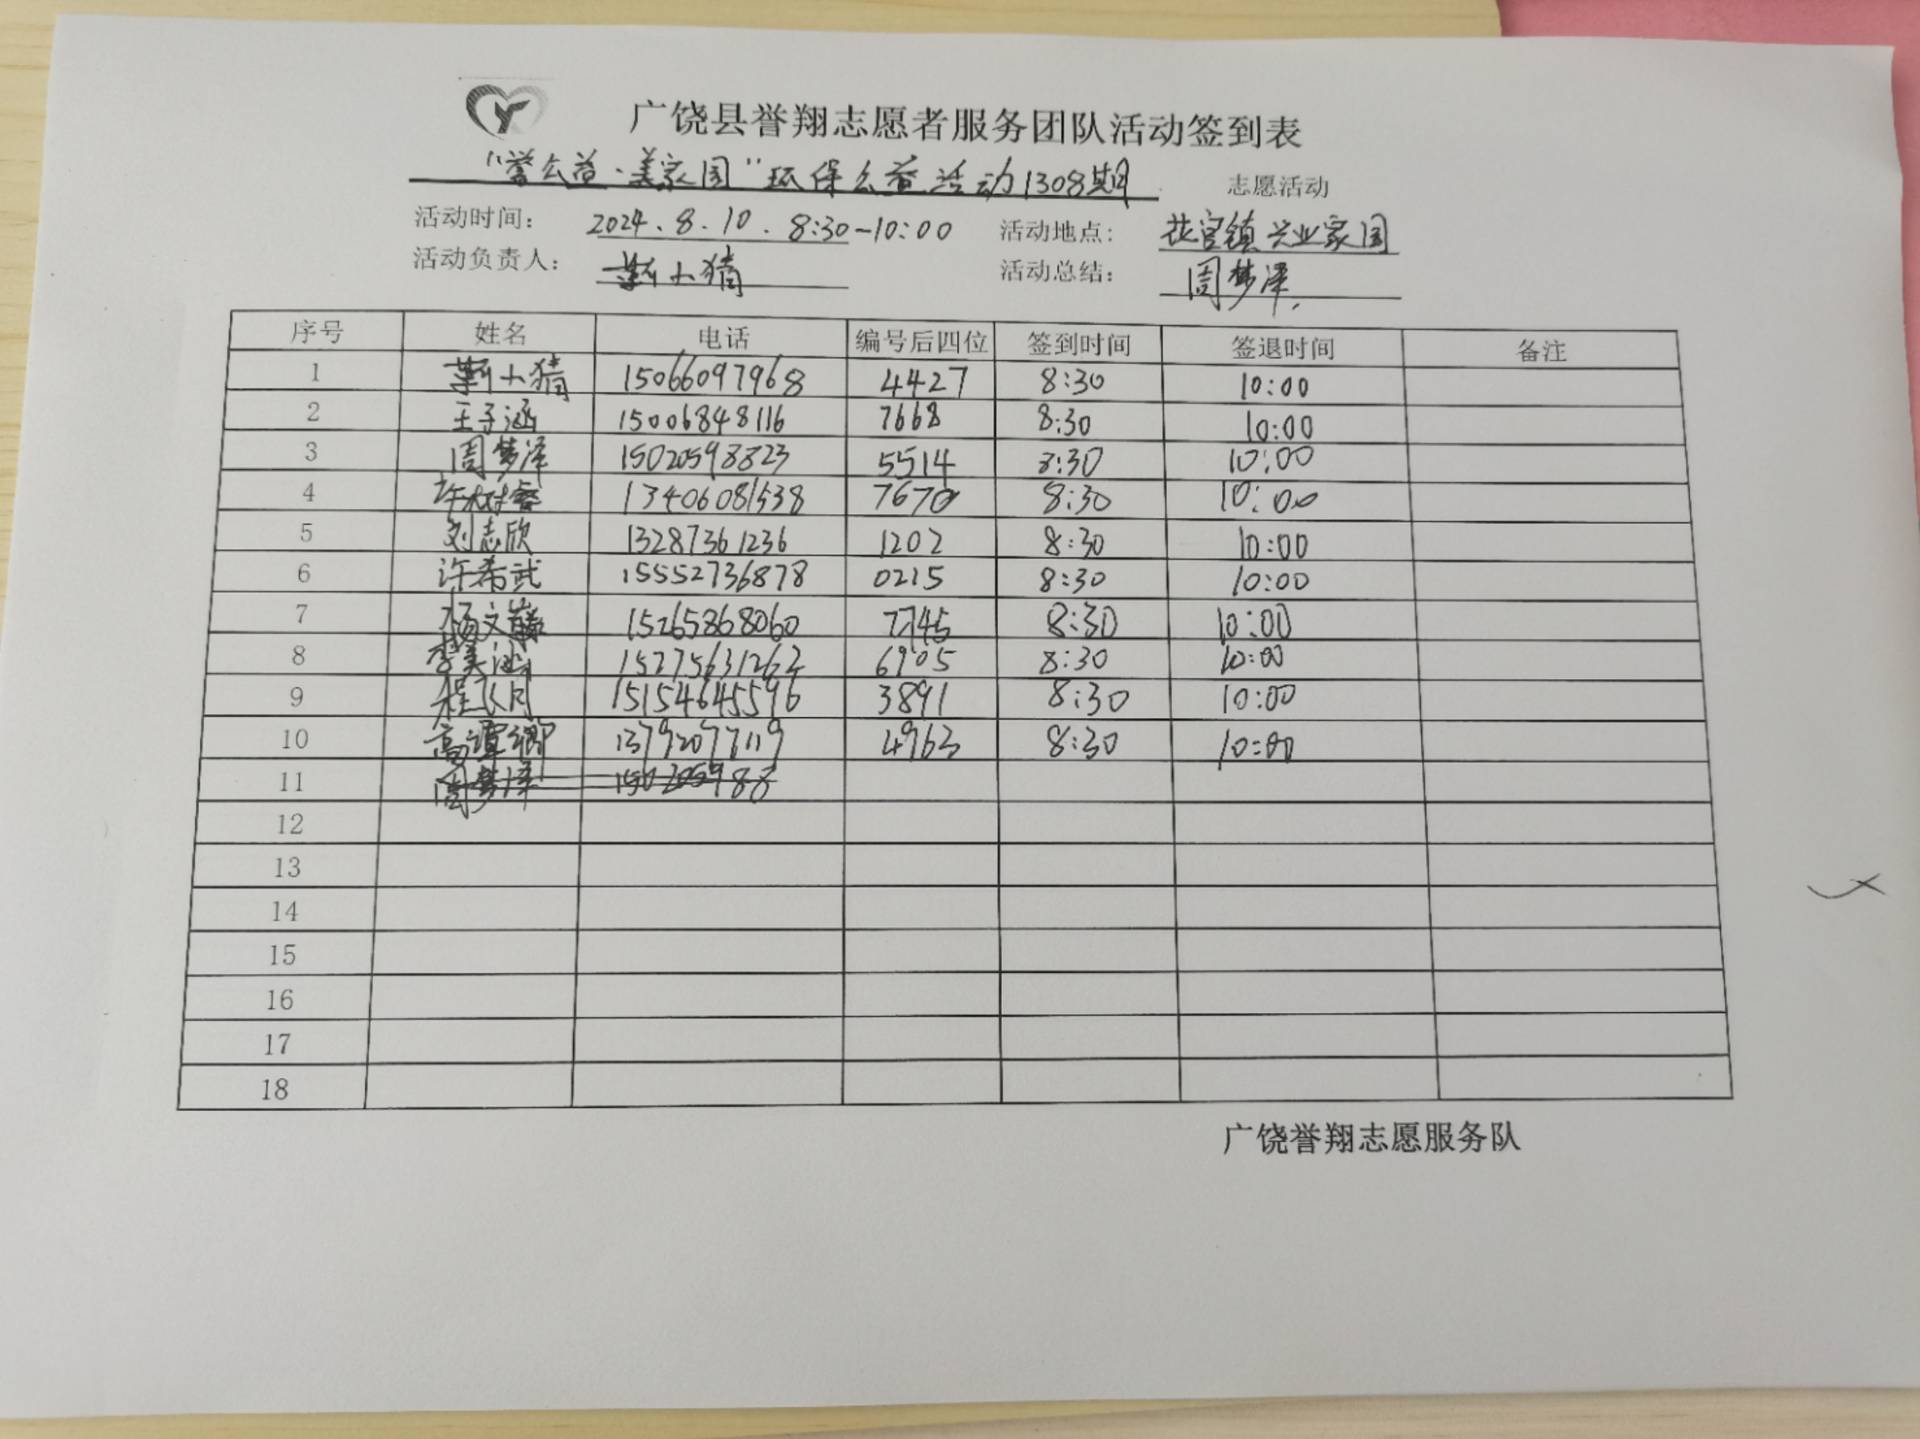 广饶县誉翔志愿者服务团队活动签到表
“誉公益·美家园”环保公益活动1308期 志愿活动
活动时间: 2024.8.10. 8:30-10:00 活动地点: 花官镇兴业家园
活动负责人: 靳小猜 活动总结: 周梦泽
序号 姓名 电话 编号后四位 签到时间 签退时间 备注
1 靳小猜 15066097968 4427 8:30 10:00
2 王子涵 15006848116 7668 8:30 10:00
3 周梦泽 15020598823 5514 8:30 10:00
4 许树睿 13406081538 7670 8:30 10:00
5 刘志欣 13287361236 1202 8:30 10:00
6 许希武 15552736878 0215 8:30 10:00
7 杨文 15265868060 7745 8:30 10:00
8 李美涵 6905 8:30 10:00
9 程 15154645596 3891 8:30 10:00
10 高 13792077119 4963 8:30 10:00
11 周梦泽 150205988
12
13
14
15
16
17
18
广饶誉翔志愿服务队